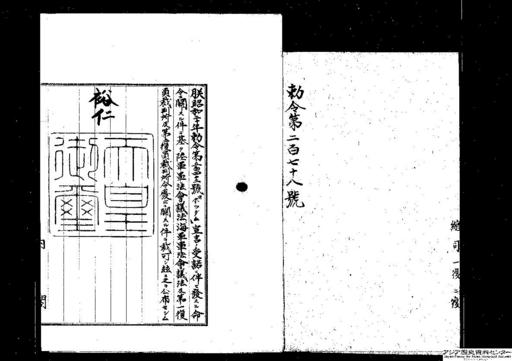 勅令第二百七十八號
朕昭和二十年勅令第五百四十二號「ポツダム」宣言ノ受諾ニ伴ヒ發スル命
令ニ關スル件ニ基ク陸軍軍法會議法海軍軍法會議法及第一復
員裁判所及第二復員裁判所令廢止ニ關スル件ヲ裁可シ玆ニ之ヲ公布セシム
裕仁
天皇
御璽
内 閣
アジア歴史資料センター